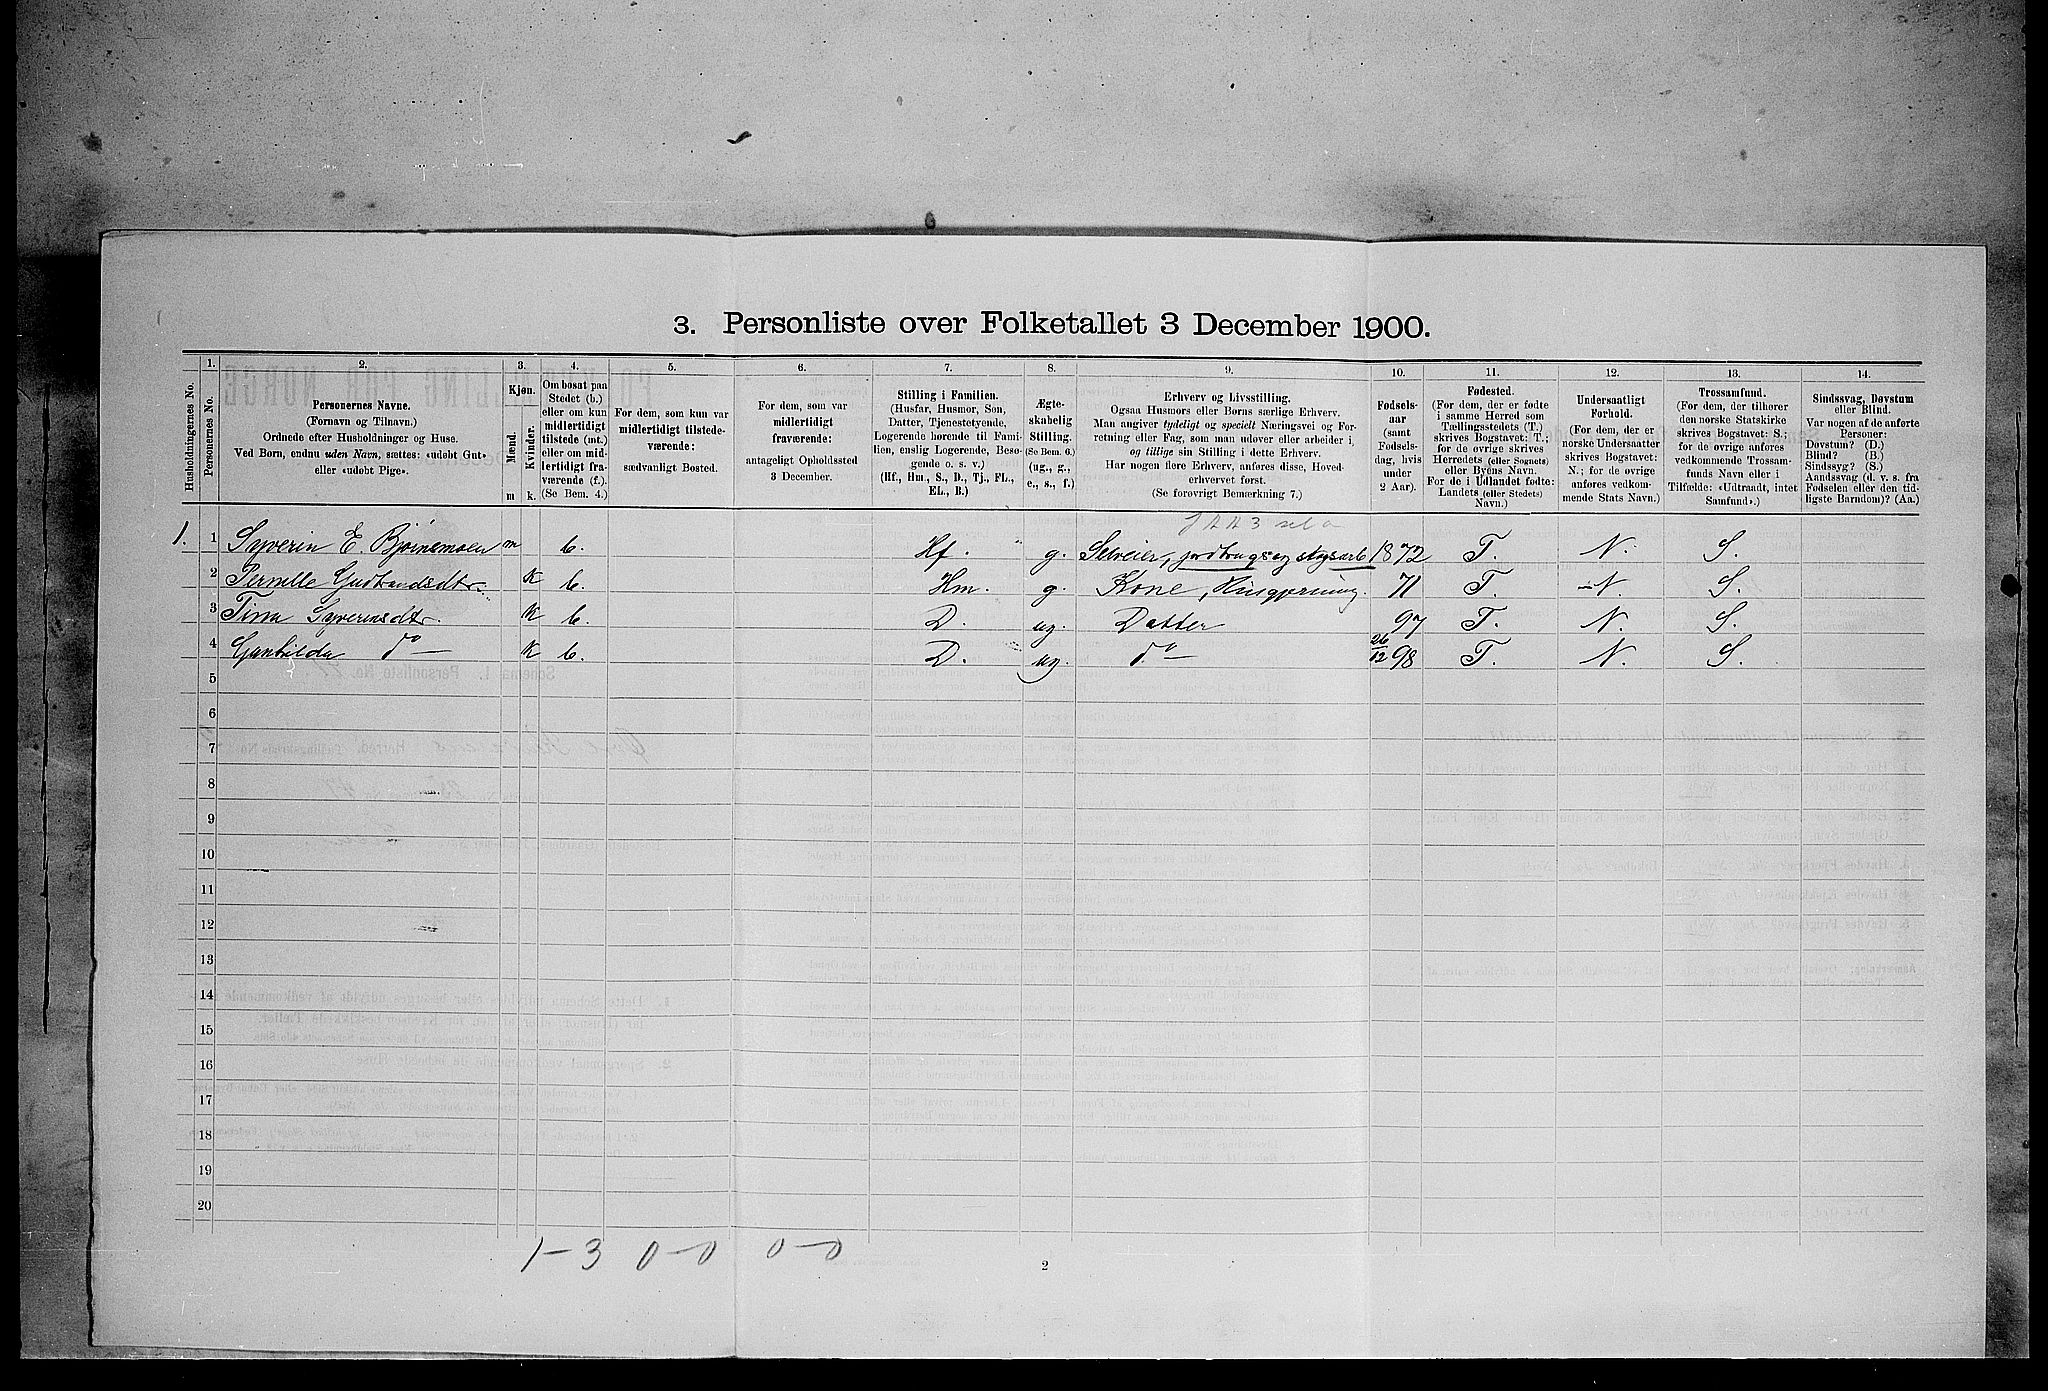 3. Personliste over Folketallet 3 December 1900.
Husholdningernes No.
1.
Personernes No.
2.
Personernes Navne.
(Fornavn og Tilnavn.)
Ordnede efter Husholdninger og Huse.
Ved Børn, endnu uden Navn, sættes: «udøbt Gut»
eller «udøbt Pige».
3.
Kjøn.
Mænd.
Kvinder.
m
k.
4.
Om bosat paa
Stedet (b.)
eller om kun
midlertidigt
tilstede (mt.)
eller om mid-
lertidigt fra-
værende (f.).
(Se Bem. 4.)
5.
For dem, som kun var
midlertidigt tilstede-
værende:
sædvanligt Bosted.
6.
For dem, som var
midlertidigt
fraværende:
antageligt Opholdssted
3 December.
7.
Stilling i Familien.
(Husfar, Husmor, Søn,
Datter, Tjenestetyende,
Logerende hørende til Fami-
lien, enslig Logerende, Besø-
gende o. s. v.)
(Hf., Hm., S., D., Tj., FL.,
EL., B.)
8.
Ægte-
skabelig
Stilling.
(Se Bem. 6.)
(ug., g.,
e., s., f.)
9.
Erhverv og Livsstilling.
Ogsaa Husmors eller Børns særlige Erhverv.
Man angiver tydeligt og specielt Næringsvei og For-
retning eller Fag, som man udøver eller arbeider i,
og tillige sin Stilling i dette Erhverv.
Har nogen flere Erhverv, anføres disse, Hoved-
erhvervet først.
(Se forøvrigt Bemærkning 7.)
10.
Fødsels-
aar
(samt
Fødsels-
dag, hvis
under
2 Aar).
11.
Fødested.
(For dem, der er fødte
i samme Herred som
Tællingsstedets (T.)
skrives Bogstavet: T.;
for de øvrige skrives
Herredets (eller Sognets)
eller Byens Navn.
For de i Udlandet fødte:
Landets (eller Stedets)
Navn.)
12.
Undersaatligt
Forhold.
(For dem, der er
norske Undersaatter
skrives Bogstavet:
N.; for de øvrige
anføres vedkom-
mende Stats Navn.)
13.
Trossamfund.
(For dem, der tilhører
den norske Statskirke
skrives Bogstavet: S.;
for de øvrige anføres
vedkommende Trossam-
funds Navn eller i
Tilfælde: «Udtraadt, intet
Samfund».)
14.
Sindssvag, Døvstum
eller Blind.
Var nogen af de anførte
Personer:
Døvstum? (D.)
Blind? (B.)
Sindssyg? (S.)
Aandssvag (d. v. s. fra
Fødselen eller den tid-
ligste Barndom)? (Aa.)
1. 1 Syverin E. Bjørnsmoen m b. Hf. g. Selveier, jordbrug og skogsarb 1872 T. N. S.
2 Pernille Gudbrandsdtr. K b. Hm. g. Kone, Husgjerning. 71 T. N. S.
3 Tina Syverinsdtr. K b. D. ug. Datter 97 T. N. S.
4 Gunhilda do — K b. D. ug. do — 26/12 98 T. N. S.
5
6
7
8
9
10
11
12
13
14
15
16
17
18
19
20
1-3 0-0 0-0
2